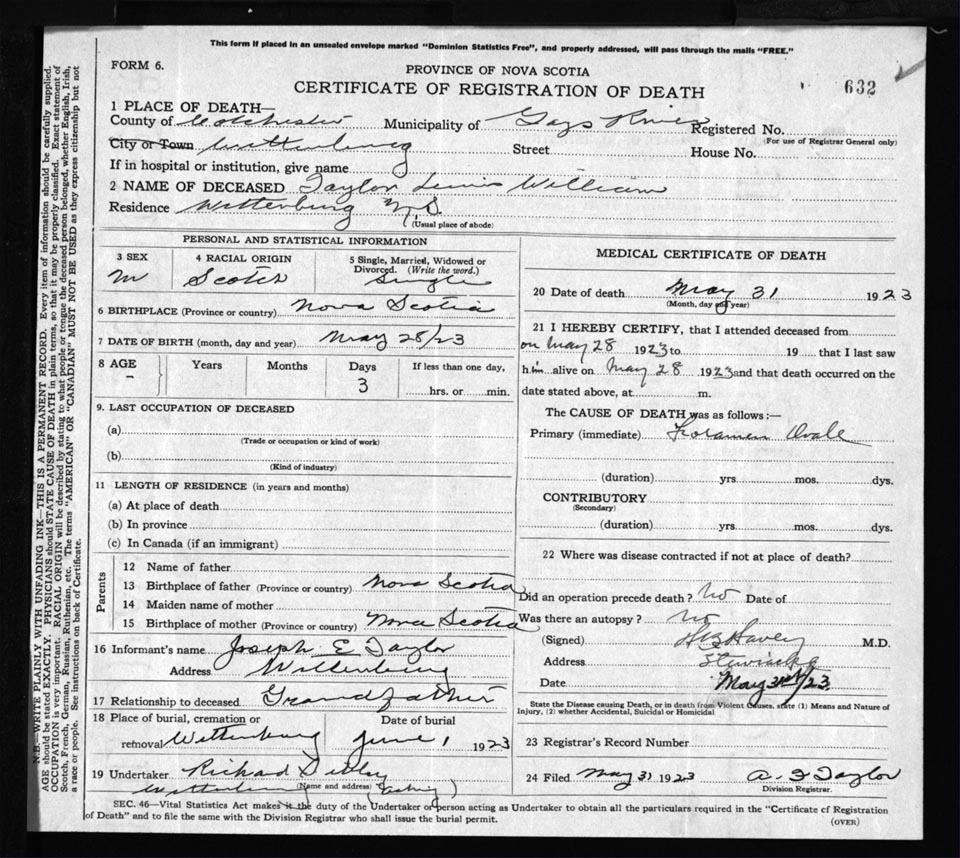 This form if placed in an unsealed envelope marked "Dominion Statistics Free", and properly addressed, will pass through the mails "FREE."
FORM 6.
PROVINCE OF NOVA SCOTIA
CERTIFICATE OF REGISTRATION OF DEATH
632
1 PLACE OF DEATH—
County of Colchester Municipality of Gays River Registered No.
(For use of Registrar General only)
City or Town Wittenburg Street House No.
If in hospital or institution, give name
2 NAME OF DECEASED Taylor Lewis William
Residence Wittenburg N.S.
(Usual place of abode)
PERSONAL AND STATISTICAL INFORMATION
3 SEX 4 RACIAL ORIGIN 5 Single, Married, Widowed or Divorced. (Write the word.)
M Scotch Single
6 BIRTHPLACE (Province or country) Nova Scotia
7 DATE OF BIRTH (month, day and year) May 28/23
8 AGE Years Months Days If less than one day,
– 3 hrs. or min.
9. LAST OCCUPATION OF DECEASED
(a)
(Trade or occupation or kind of work)
(b)
(Kind of industry)
11 LENGTH OF RESIDENCE (in years and months)
(a) At place of death
(b) In province
(c) In Canada (if an immigrant)
Parents
12 Name of father
13 Birthplace of father (Province or country) Nova Scotia
14 Maiden name of mother
15 Birthplace of mother (Province or country) Nova Scotia
16 Informant's name Joseph E Taylor
Address Wittenburg
17 Relationship to deceased Grandfather
18 Place of burial, cremation or Date of burial
removal Wittenburg June 1 1923
19 Undertaker Richard Sibley
(Name and address)
Wittenburg (Acting)
MEDICAL CERTIFICATE OF DEATH
20 Date of death May 31 1923
(Month, day and year)
21 I HEREBY CERTIFY, that I attended deceased from
on May 28 1923 to 19 that I last saw
him alive on May 28 1923 and that death occurred on the
date stated above, at m.
The CAUSE OF DEATH was as follows:—
Primary (immediate) Foramen Ovale
(duration) yrs. mos. dys.
CONTRIBUTORY
(Secondary)
(duration) yrs. mos. dys.
22 Where was disease contracted if not at place of death?
Did an operation precede death? No Date of
Was there an autopsy? No
(Signed) M.D.
Address Stewiacke
Date May 31st/23.
State the Disease causing Death, or in death from Violent Causes, state (1) Means and Nature of
Injury, (2) whether Accidental, Suicidal or Homicidal
23 Registrar's Record Number
24 Filed May 31 1923 Taylor
Division Registrar.
SEC. 46—Vital Statistics Act makes it the duty of the Undertaker or person acting as Undertaker to obtain all the particulars required in the "Certificate of Registration
of Death" and to file the same with the Division Registrar who shall issue the burial permit.
(OVER)
N.B.—WRITE PLAINLY WITH UNFADING INK—THIS IS A PERMANENT RECORD. Every item of information should be carefully supplied.
AGE should be stated EXACTLY. PHYSICIANS should STATE CAUSE OF DEATH in plain terms, so that it may be properly classified. Exact statement of
OCCUPATION is very important. RACIAL ORIGIN will be described by stating to what people or tongue the deceased person belonged, whether English, Irish,
Scotch, French, German, Russian, Ruthenian, etc. The terms "AMERICAN" OR "CANADIAN" MUST NOT BE USED as they express citizenship but not
a race or people. See instructions on back of Certificate.